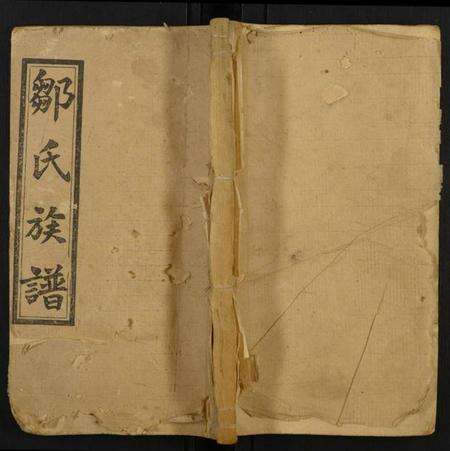 鄒氏族譜